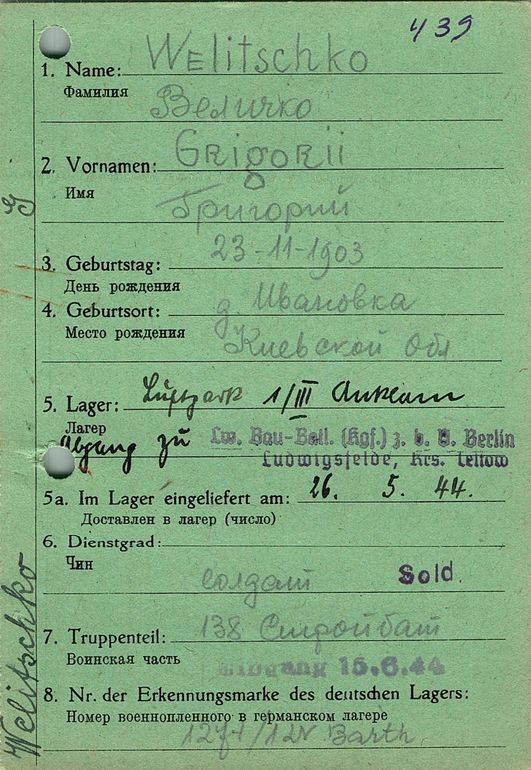 439
1. Name: Welitschko
Фамилия Величко
2. Vornamen: Grigorii
Имя Григорий
3. Geburtstag: 23-11-1903
День рождения
4. Geburtsort: д. Ивановка
Место рождения Киевской Обл
5. Lager: Luftpark 1/III Anklam
Лагер
Abgang zu Lw. Bau-Batl. (Kgf.) z. b. V. Berlin
Ludwigsfelde, Krs. Teltow
5a. Im Lager eingeliefert am: 26. 5. 44.
Доставлен в лагер (число)
6. Dienstgrad:
Чин солдат Sold.
7. Truppenteil: 138 Стройбат
Воинская часть Abgang 15.6.44
8. Nr. der Erkennungsmarke des deutschen Lagers:
Номер военнопленного в германском лагере
Barth.
Welitschko